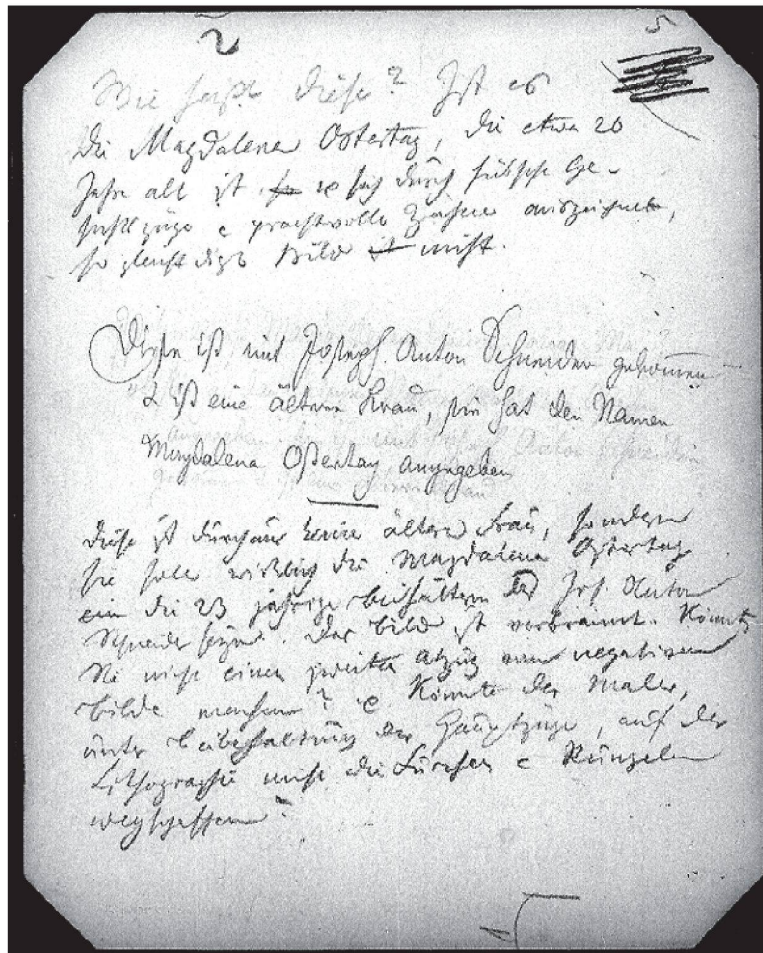 2
5
Wie heißt diese? Ist es
die Magdalena Ostertag, die etwa 20
Jahre alt ist & sich durch hübsche Ge-
sichtszüge & prachtvolle Zähne auszeichnet,
so gleicht dieß Bild nicht.
Diese ist mit Joseph Anton Schneider gekommen
& ist eine ältere Frau, sie hat den Namen
Magdalena Ostertag angegeben
diese ist durchaus keine ältere Frau, sondern
sie soll wirklich die Magdalena Ostertag
die 23 jährige Beihälterin des Jos. Anton
Schneider seyn. Das Bild ist verbrannt. Könnte
nicht einen zweiten Abzug vom negativen
Bilde machen? & Könnte der Maler,
unter Beibehaltung der Hauptzüge, auf der
Lithographie nicht die Furchen & Runzeln
wegschaffen?